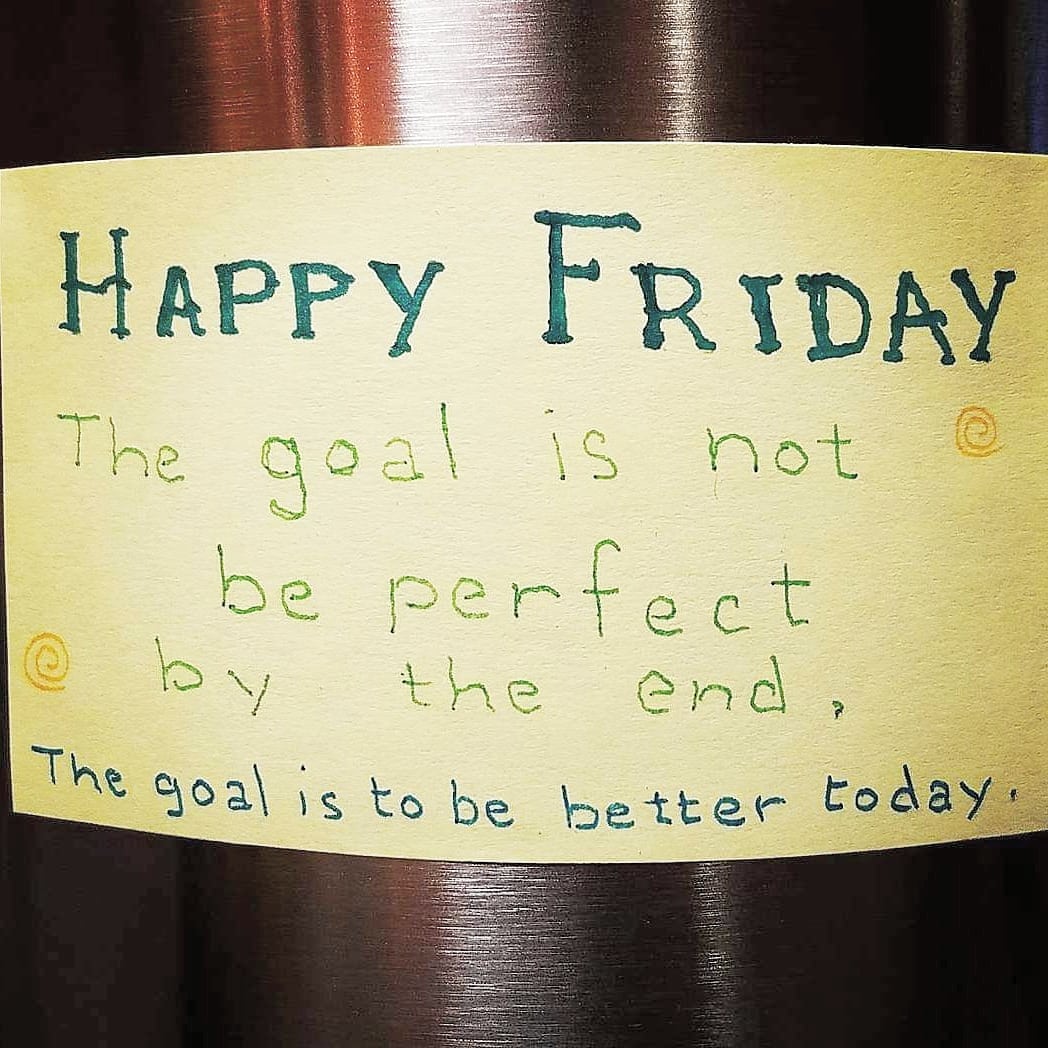 HAPPY FRIDAY
The goal is not
be perfect
by the end,
The goal is to be better today.